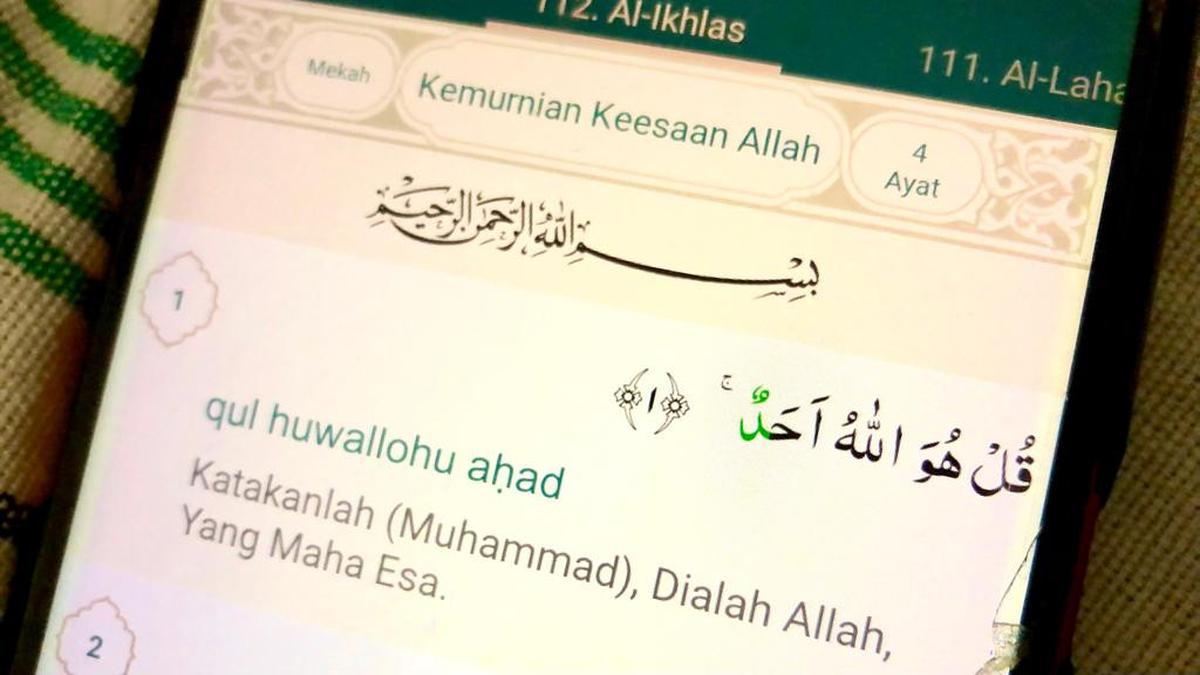 112. Al-Ikhlas
111. Al-Laha
Mekah
Kemurnian Keesaan Allah
4
Ayat
بِسْمِ اللّٰهِ الرَّحْمٰنِ الرَّحِيْمِ
1
قُلْ هُوَ اللّٰهُ اَحَدٌ ۚ ﴿١﴾
qul huwallohu aḥad
Katakanlah (Muhammad), Dialah Allah,
Yang Maha Esa.
2